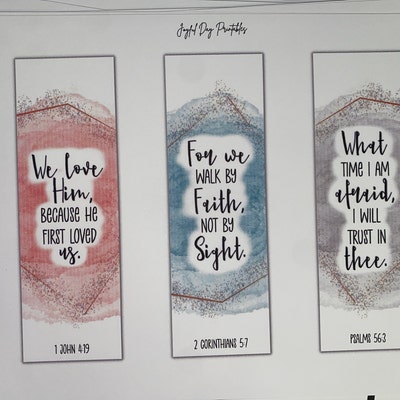 Joyful Day Printables
We love
Him,
BECAUSE HE
FIRST LOVED
us.
1 JOHN 4:19
For we
WALK BY
Faith,
NOT BY
Sight.
2 CORINTHIANS 5:7
What
TIME I AM
afraid,
I WILL
TRUST IN
thee.
PSALMS 56:3